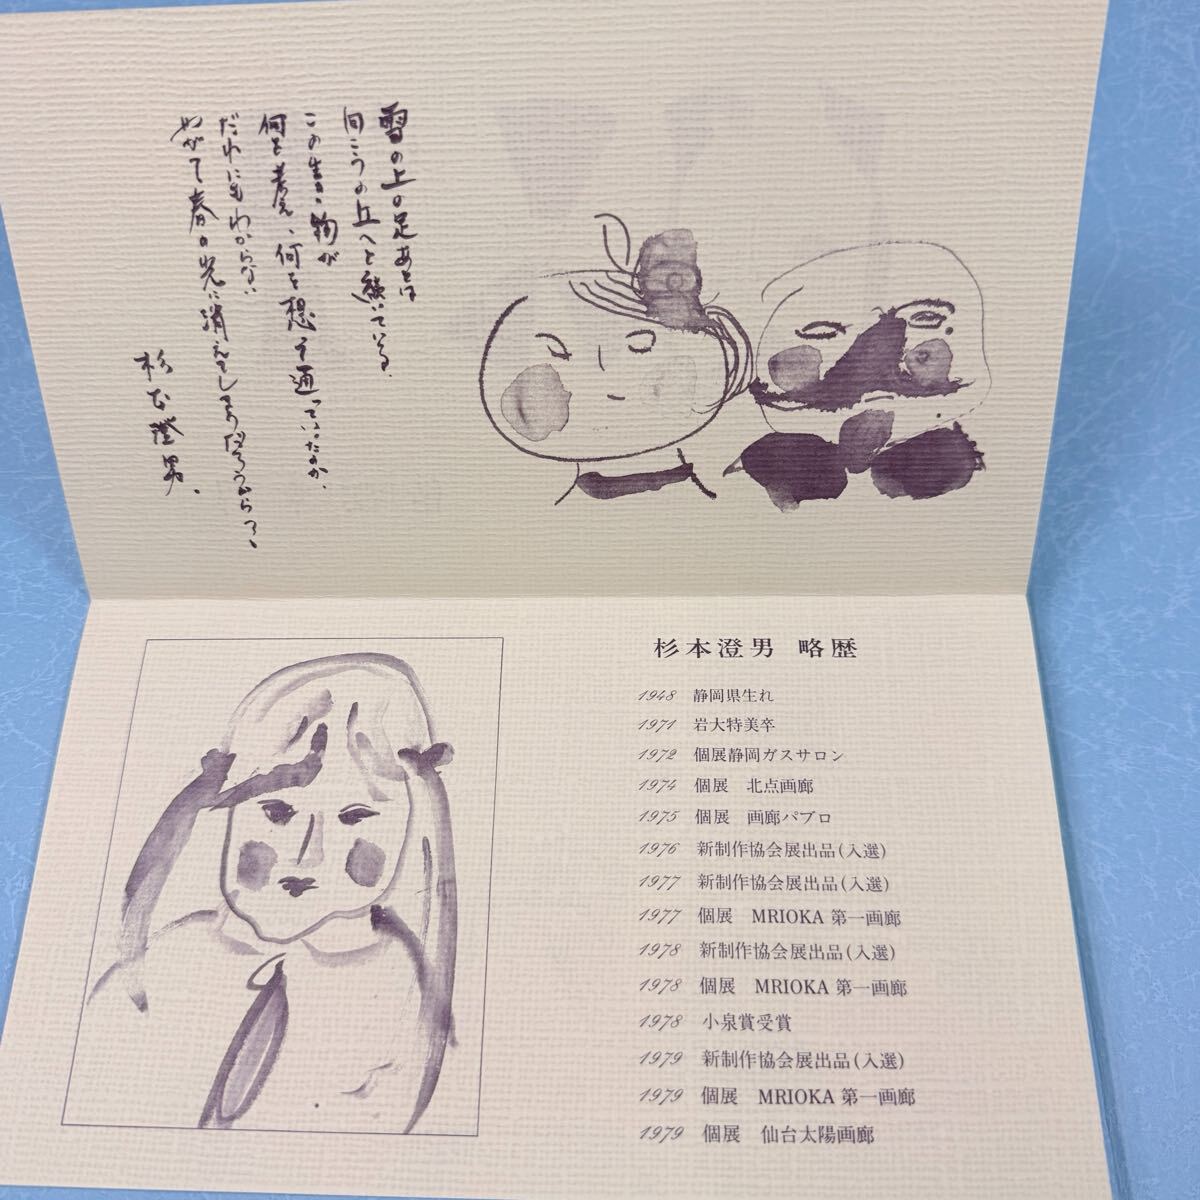 雪の上の足あとは
向こうの丘へと続いている。
この生き物が
何を考え、何を想って通っていったのか、
だれにもわからない
やがて春の光に消えてしまうだろうから、
杉本澄男、
杉本澄男 略歴
1948 静岡県生れ
1971 岩大特美卒
1972 個展静岡ガスサロン
1974 個展 北点画廊
1975 個展 画廊パブロ
1976 新制作協会展出品(入選)
1977 新制作協会展出品(入選)
1977 個展 MRIOKA 第一画廊
1978 新制作協会展出品(入選)
1978 個展 MRIOKA 第一画廊
1978 小泉賞受賞
1979 新制作協会展出品(入選)
1979 個展 MRIOKA 第一画廊
1979 個展 仙台太陽画廊